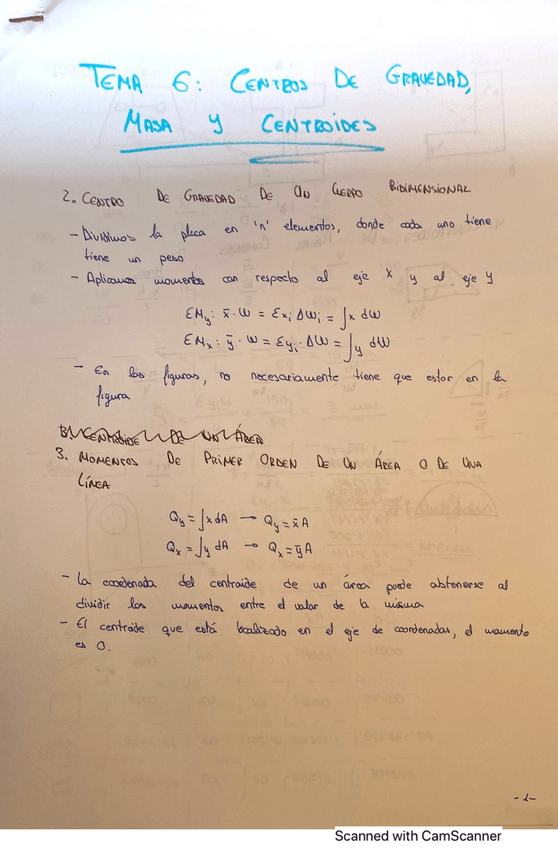 TEMA 6: CENTROS DE GRAVEDAD,
MASA Y CENTROIDES
2. CENTRO DE GRAVEDAD DE UN CUERPO BIDIMENSIONAL
- Dividimos la placa en 'n' elementos, donde cada uno tiene
tiene un peso
- Aplicamos momentos con respecto al eje X y al eje Y
ΣMy: x̄·W = Σxi ΔWi = ∫x dW
ΣMx: ȳ·W = Σyi·ΔW = ∫y dW
- En las figuras, no necesariamente tiene que estar en la
figura
B) CENTROIDE DE UN ÁREA
3. MOMENTOS DE PRIMER ORDEN DE UN ÁREA O DE UNA
LÍNEA
Qy = ∫x dA → Qy = x̄A
Qx = ∫y dA → Qx = ȳA
- La coordenada del centroide de un área puede obtenerse al
dividir los momentos entre el valor de la misma
- El centroide que está localizado en el eje de coordenadas, el momento
es 0.
-1-
Scanned with CamScanner